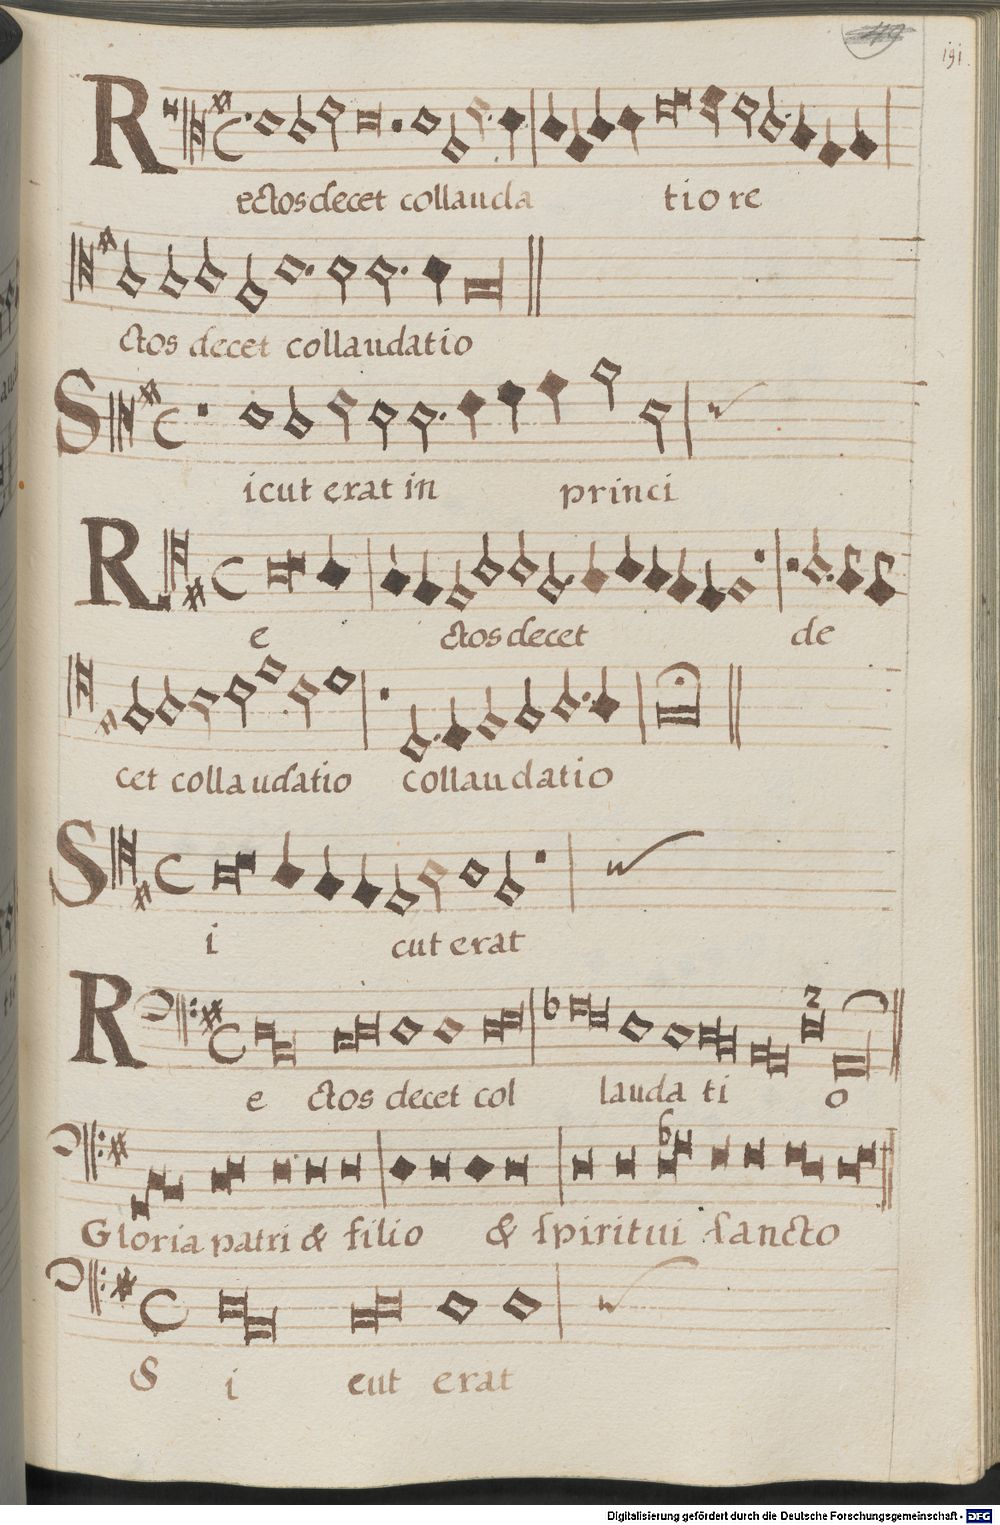 191
Rectos decet collauda tio re
ctos decet collaudatio
Sicut erat in princi
Re ctos decet de
cet collaudatio collaudatio
Si cut erat
Re ctos decet col lauda ti o
Gloria patri & filio & spiritui sancto
S i cut erat
Digitalisierung gefördert durch die Deutsche Forschungsgemeinschaft - DFG